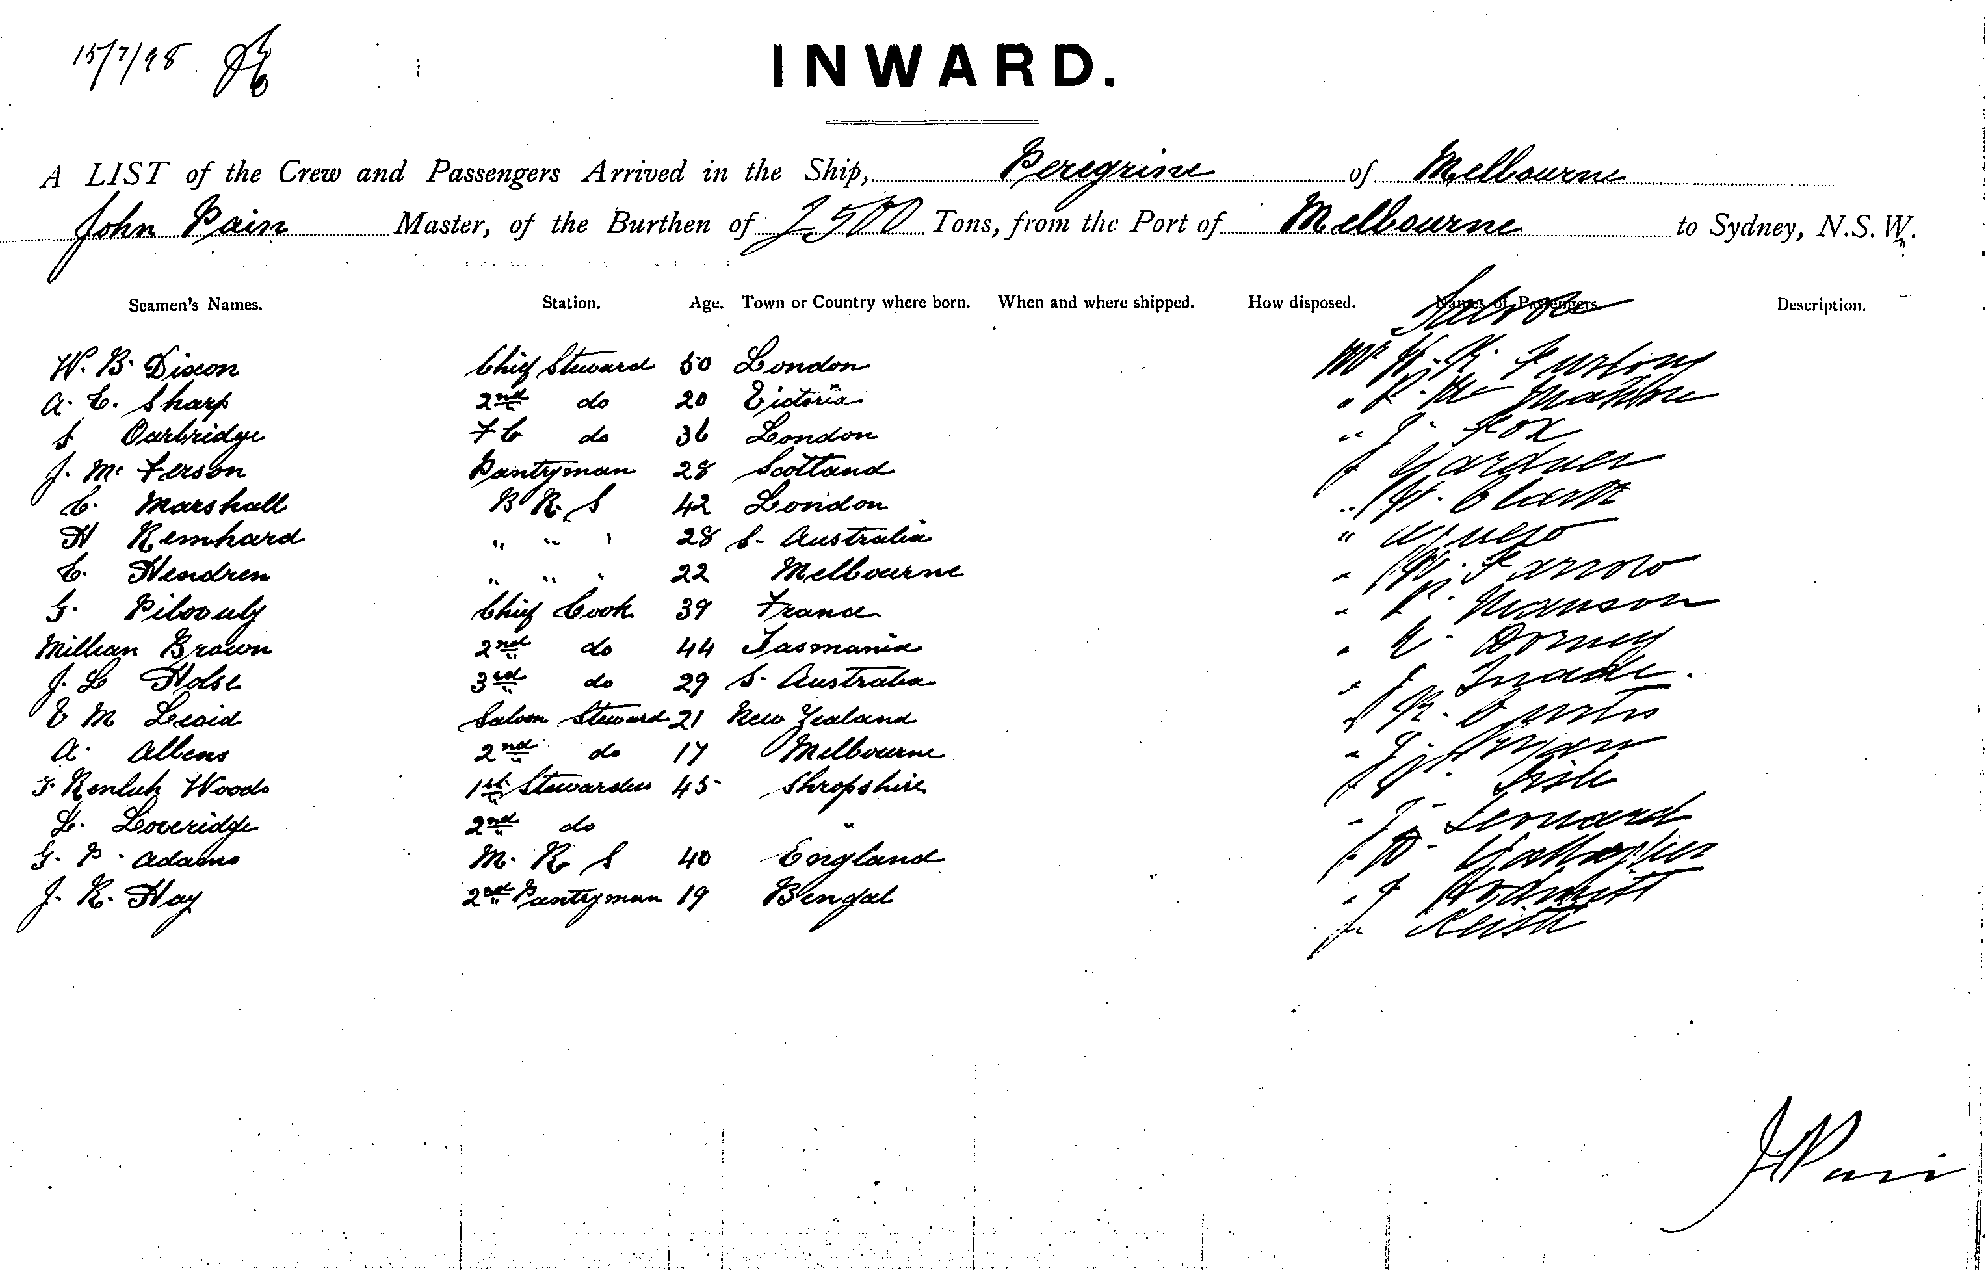 15/7/98
INWARD.
A LIST of the Crew and Passengers Arrived in the Ship, Peregrine of Melbourne
John Pain Master, of the Burthen of 2500 Tons, from the Port of Melbourne to Sydney, N.S.W.
Seamen's Names. Station. Age. Town or Country where born. When and where shipped. How disposed. Names of Passengers. Description.
Saloon
W. B. Dixon Chief Steward 50 London Mr W. R. Furlong
A. E. Sharp 2nd do 20 Victoria " R. Mc
S Oarbridge F C do 36 London " J. Fox
J. Mc Ferson Pantryman 28 Scotland J Gardner
C. Marshall B R S 42 London " W. Clark
H Reinhard " " " 28 S. Australia "
C. Hendren " " " 22 Melbourne " W. Farrow
G. Chief Cook 39 France " Manson
William Brown 2nd do 44 Tasmania " Dorney
J. L Holse 3rd do 29 S. Australia " J
E M Saloon Steward 21 New Zealand " R.
A. Albens 2nd do 17 Melbourne " J.
F. Woods 1st Stewardess 45 Shropshire
L. Loveridge 2nd do " " J. Leonard
G. P. Adams M. R S 40 England " Gallagher
J. R. Hay 2nd Pantryman 19 Bengal " J
J. Keith
J Pain